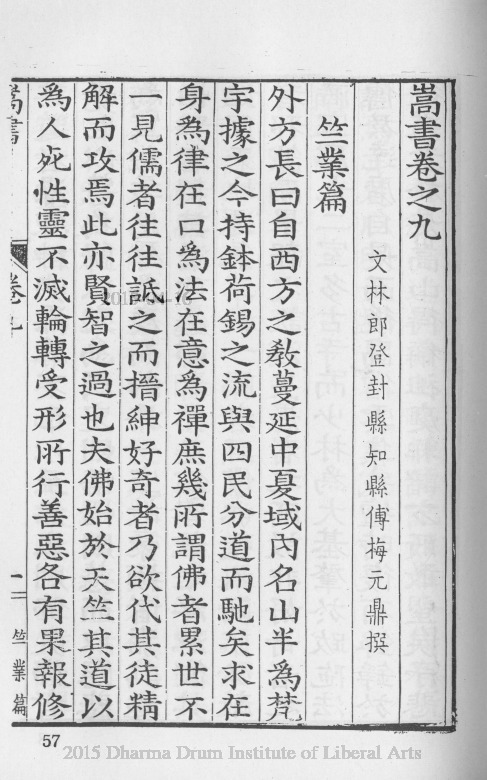 嵩書卷之九
文林郎登封縣知縣傅梅元鼎撰
竺業篇
外方長曰自西方之敎蔓延中夏域內名山半爲梵
宇據之今持鉢荷錫之流與四民分道而馳矣求在
身爲律在口爲法在意爲禪庶幾所謂佛者累世不
一見儒者往往詆之而搢紳好奇者乃欲代其徒精
解而攻焉此亦賢智之過也夫佛始於天竺其道以
爲人死性靈不滅輪轉受形所行善惡各有果報修
嵩書
卷九
一
竺業篇
57
2015 Dharma Drum Institute of Liberal Arts